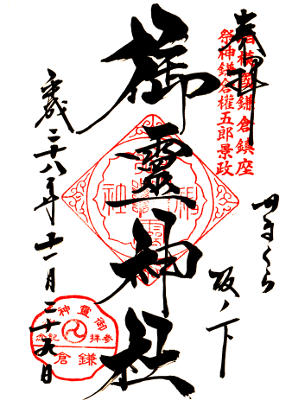 奉拝
相模國鎌倉鎮座
祭神鎌倉權五郎景政
かまくら
坂ノ下
御靈神社
平成二十八年十一月二十九日
御霊神社
参拝記念
鎌倉